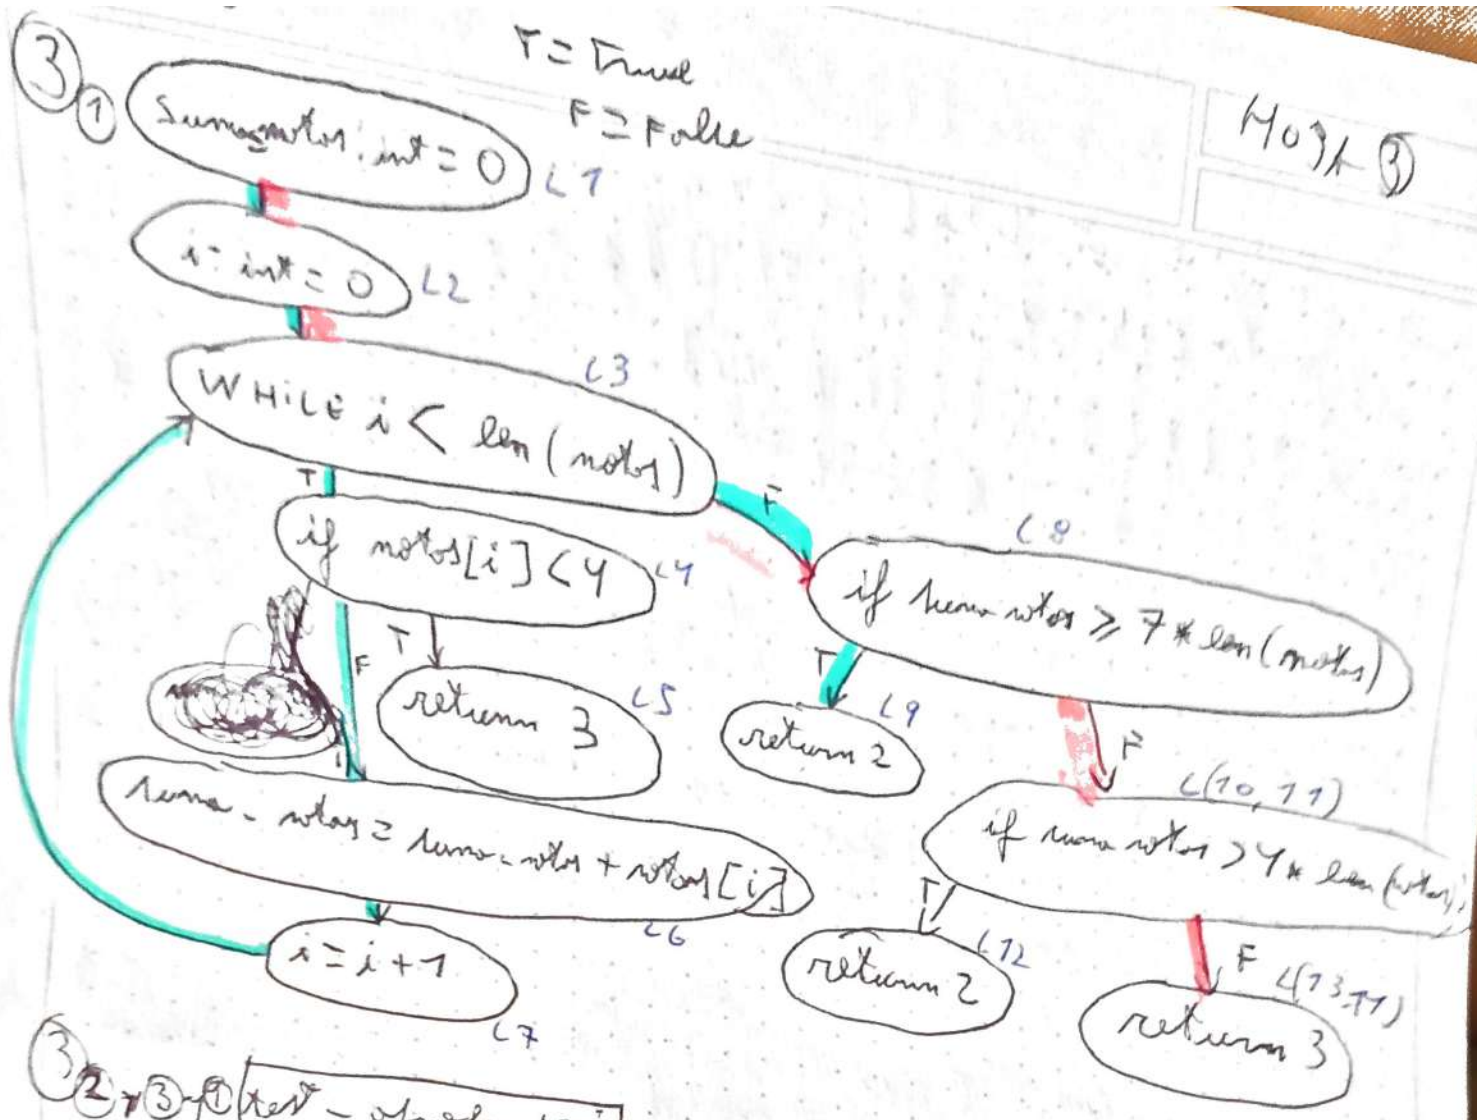 ③ ①
T = True
F = False
HOJA ③
suma_notas: int = 0 L1
i: int = 0 L2
WHILE i < len(notas) L3
T
F
if notas[i] < 4 L4
F
T
return 3 L5
suma_notas = suma_notas + notas[i] L6
i = i + 1 L7
if suma notas ⩾ 7 * len(notas) L8
T
F
return 2 L9
if suma notas > 4 * len(notas) L(10, 11)
T
F
return 2 L12
return 3
③ ② y ③